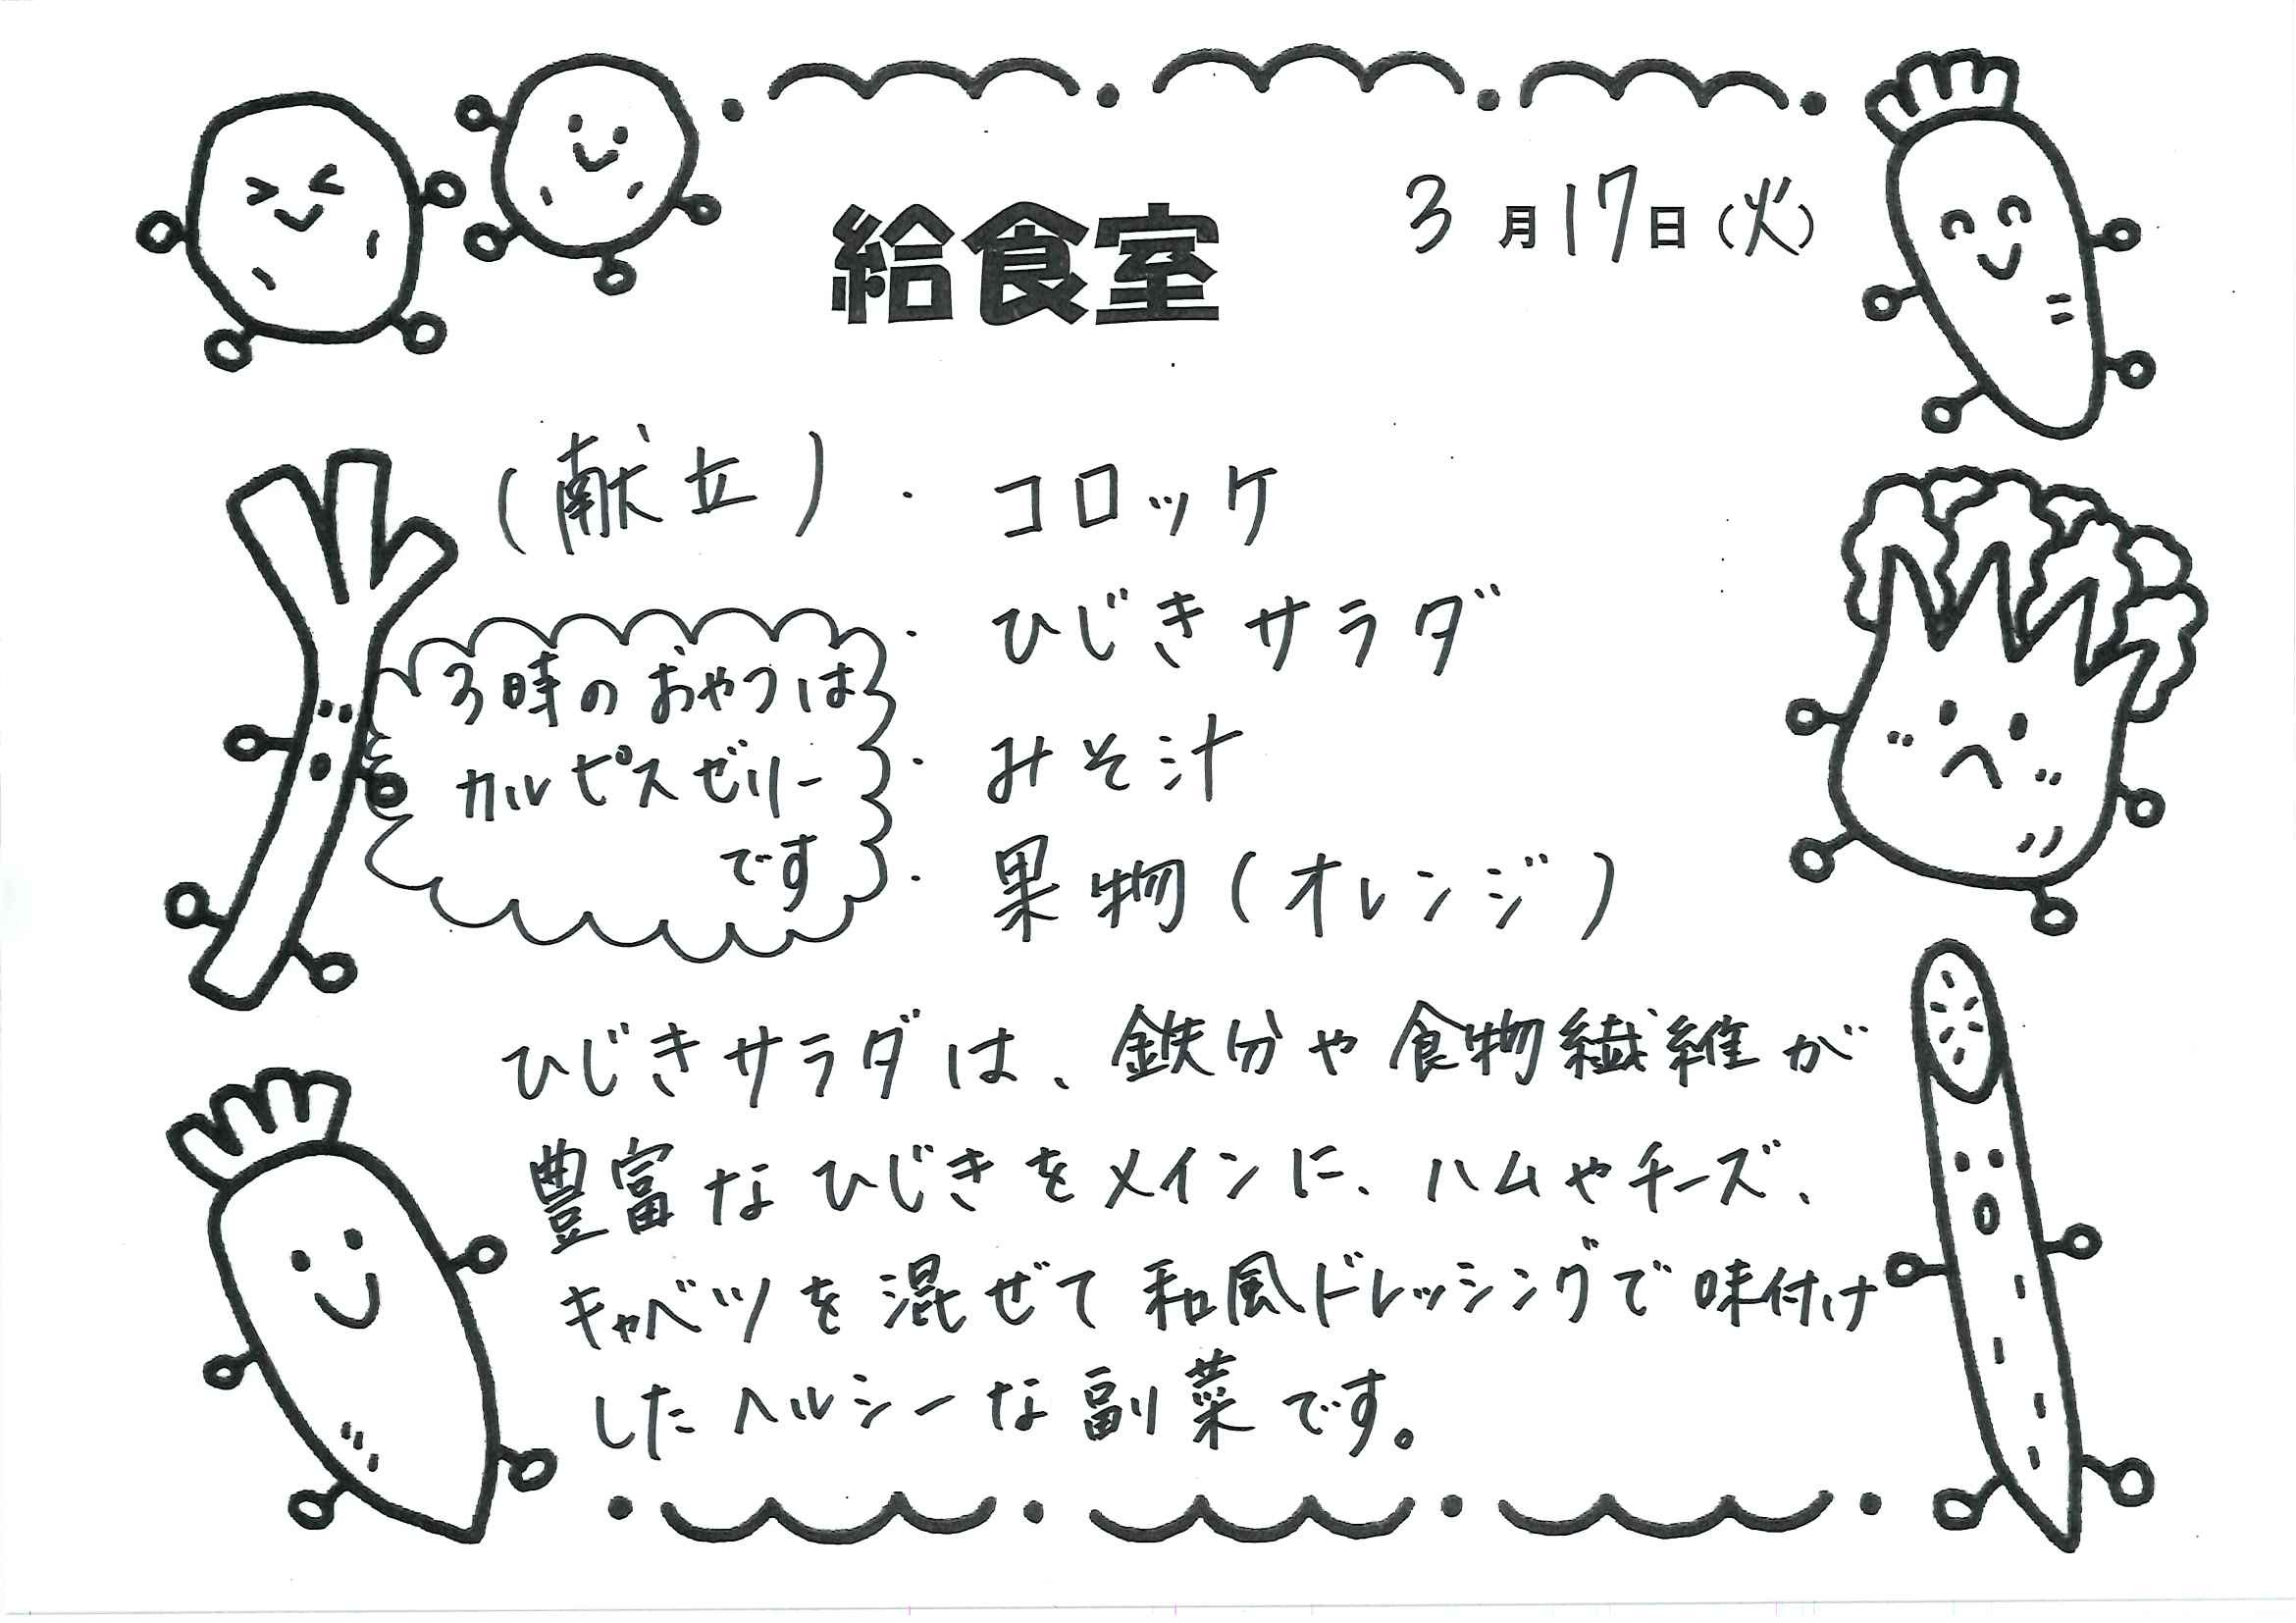 給食室
3月17日(火)
(献立)・コロッケ
・ひじきサラダ
・みそ汁
・果物(オレンジ)
3時のおやつは
カルピスゼリー
です
ひじきサラダは、鉄分や食物繊維が
豊富なひじきをメインに、ハムやチーズ、
キャベツを混ぜて和風ドレッシングで味付け
したヘルシーな副菜です。